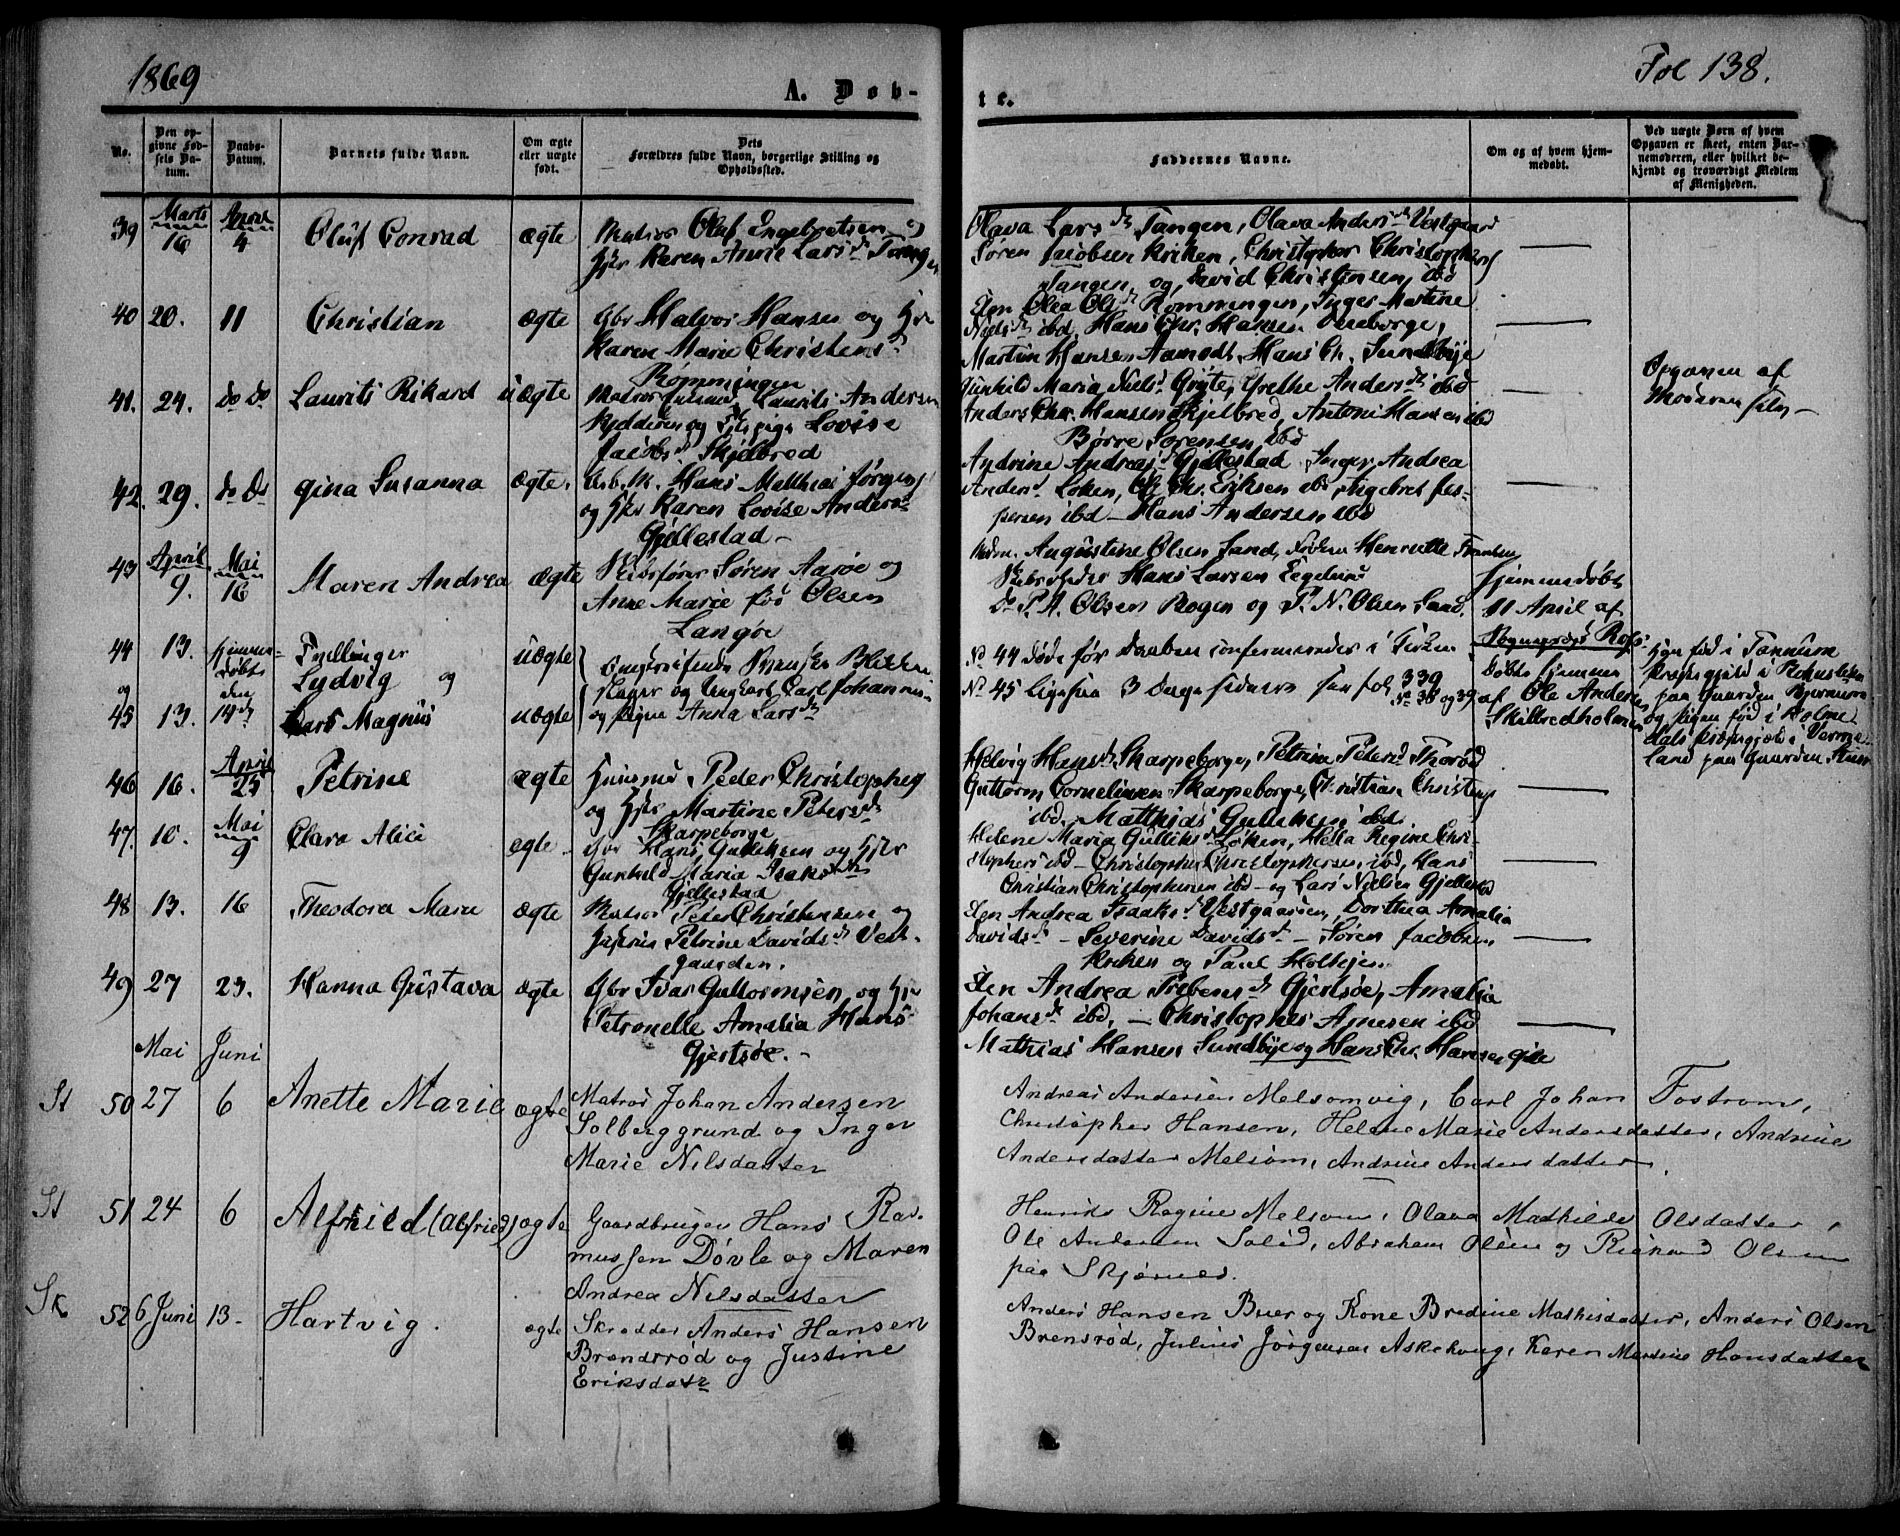 1869
Fol 138.
A. Døb-
te.
No.
Den op-
givne Fød-
sels Da-
tum.
Daabs-
Datum.
Barnets fulde Navn.
Om ægte
eller uægte
født.
Dets
Forældres fulde Navn, borgerlige Stilling og
Opholdssted.
Faddernes Navne.
Om og af hvem hjem-
medøbt.
Ved uægte Børn af hvem
Opgaven er skeet, enten Bar-
nemoderen, eller hvilket be-
kjendt og troværdigt Medlem
af Menigheden.
39 Marts 16 April 4 Oluf Conrad ægte Matros Oluf Engebretsen og
Hstr Karen Anne Larsdr Tangen
Olava Larsdr Tangen, Olava Andersdr Vestgaard
Søren Jacobsen Kriken, Christopher Christophers
Tangen og David Christensen ibd
40 20. 11 Christian ægte Gbr Halvor Hansen og Hstr
Karen Marie Christensdr
Rømmingen
Olea Olsdr Rømmingen, Inger Martine
Nielsdr ibd, Hans Chr. Hansen
Martin Hansen Aamodt, Hans Ch. Sundbye
41. 24. do do Laurits Rikard uægte Matros Laurits Andersen
og Pige Lovise
Jacobsdr Skjelbred
Gunhild Maria Nielsd Gryte, Grethe Andersdr ibd
Anders Chr. Hansen Skjelbred, Anton Hansen ibd
Børre Sørensen ibd
Opgaven af
Moderen selv
42. 29. do Do Gina Susanna ægte. Hans Matthias Jørgens
og Hstr Karen Lovise Andersdr
Gjellestad
Andrine Andreasd Gjellestad Inger Andrea
Andersd Løken, Ole Chr. Eriksen ibd
ibd Hans Andersen ibd
43 April 9. Mai 16 Maren Andrea ægte Skibsfører Søren Aarøe og
Anne Marie fød Olsen
Langøe
Madm. Augustine Olsen Sand, Frøken Henriette
Skibsreder Hans Larsen
Do P. A. Olsen Bogen og P. N. Olsen Sand.
Hjemmedøbt
11 April af
Sogneprest
44 13. Hjemme-
døbt
den
14de
Ludvig og
uægte
og
45 13. Lars Magnus uægte
og Ungkarl Carl Johannes
og Pigen Anna Larsdr
No 44 døde før Daaben confirmeredes i Kirken
No 45 ligesaa 3 Dage sidenere see fol 339
No 38 og 39
Døbte hjemme
af Ole Andersen
Skilbredholmen
Han fød i Tannum
Præstegjeld i Bohuslehn
paa Gaarden
og Pigen fød i Holme-
dals Præstegjeld i Verme-
land paa Gaarden
46 16. April 25 Petrine ægte Huusmd Peder Christophers
og Hstr Martine Petersdr
Skarpeborge
Helvig Hansd Skarpeborge, Petrine Petersd Thorød
Guttorm Corneliusen Skarpeborge, Christian Christens
ibd. Matthias Gulliksen ibd
47. 10. Mai 9 Clara Alice ægte Gbr Hans Gulliksen og Hstr
Gunhild Maria Isaksdr
Gjellestad
Helene Maria Gulliksd Løken, Hella Regine Chri-
stophersd ibd Christopher Christophersen ibd, Hans
Christian Christophersen ibd og Lars Nielsen Gjellestad
48 13. 16 Theodora Marie ægte Matros Peter Christensen og
Hustru Petrine Davidsdr Vest-
gaarden.
Andrea Isaaksd Vestgaarden, Dorthea Amalia
Davidsdr Severine Davidsdr Søren Jacobsen
Kriken og Paul Holtejen
49 27 23. Hanna Gustava ægte Gbr Ivar Guttormsen og Hstr
Petronelle Amalia Hans
Gjertsøe.
Andrea Prebensdr Gjertsøe, Amalia
Johansdr ibd, Christopher Arnesen ibd
Mathias Hansen Sundbye og Hans Chr. Hansen
Mai Juni
St 50 27 6 Anette Marie ægte Matros Johan Andersen
Solberggrund og Inger
Marie Nilsdatter
Andreas Andersen Melsomvig, Carl Johan Fostrom,
Christopher Hansen, Helene Marie Andersdatter, Andrine
Andersdatter Melsom, Andrine Andersdatter.
St 51 24 6 Alfhild (Alfried) ægte Gaardbruger Hans Ras-
mussen Døvle og Maren
Andrea Nilsdatter
Regine Melsom, Olava Mathilde Olsdatter,
Ole Andersen, Abraham Olsen og Rikard Olsen
paa Skjærnes.
Sk 52 6 Juni 13. Hartvig. ægte Skrædder Anders Hansen
Brendsrød og Justine
Eriksdatr
Anders Hansen Buer og Kone Bredine Mathisdatter, Anders Olsen
Brensrød, Julius Jørgensen Askehoug, Karen Martine Hansdatter